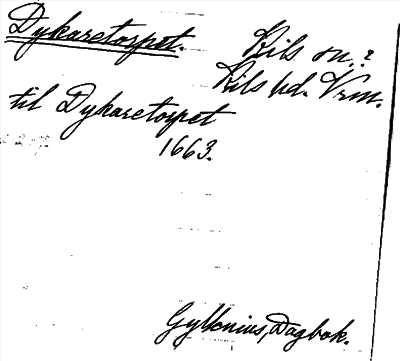 Dykaretorpet.
Kils sn.?
Kils hd. Vrm.
til Dykaretorpet
1663.
Gyllonius, Dagbok.